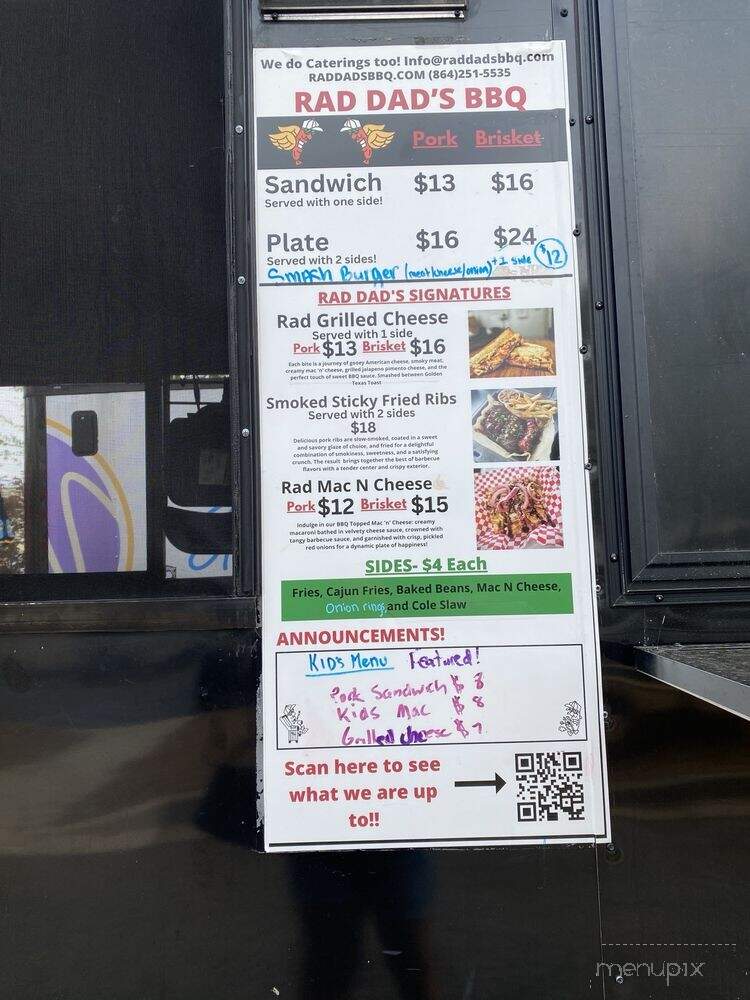 We do Caterings too! Info@raddadsbbq.com
RADDADSBBQ.COM (864)251-5535
RAD DAD'S BBQ
Pork Brisket
Sandwich $13 $16
Served with one side!
Plate $16 $24
Served with 2 sides!
Smash Burger (meat/cheese/onion) +1 side $12
RAD DAD'S SIGNATURES
Rad Grilled Cheese
Served with 1 side
Pork $13 Brisket $16
Each bite is a journey of gooey American cheese, smoky meat,
creamy mac 'n' cheese, grilled jalapeno pimento cheese, and the
perfect touch of sweet BBQ sauce. Smashed between Golden
Texas Toast
Smoked Sticky Fried Ribs
Served with 2 sides
$18
Delicious pork ribs are slow-smoked, coated in a sweet
and savory glaze of choice, and fried for a delightful
combination of smokiness, sweetness, and a satisfying
crunch. The result brings together the best of barbecue
flavors with a tender center and crispy exterior.
Rad Mac N Cheese
Pork $12 Brisket $15
Indulge in our BBQ Topped Mac 'n' Cheese: creamy
macaroni bathed in velvety cheese sauce, crowned with
tangy barbecue sauce, and garnished with crisp, pickled
red onions for a dynamic plate of happiness!
SIDES- $4 Each
Fries, Cajun Fries, Baked Beans, Mac N Cheese,
Onion rings, and Cole Slaw
ANNOUNCEMENTS!
KID'S Menu Featured!
Pork Sandwich $8
Kids Mac $8
Grilled cheese $7
Scan here to see
what we are up
to!!
menupix